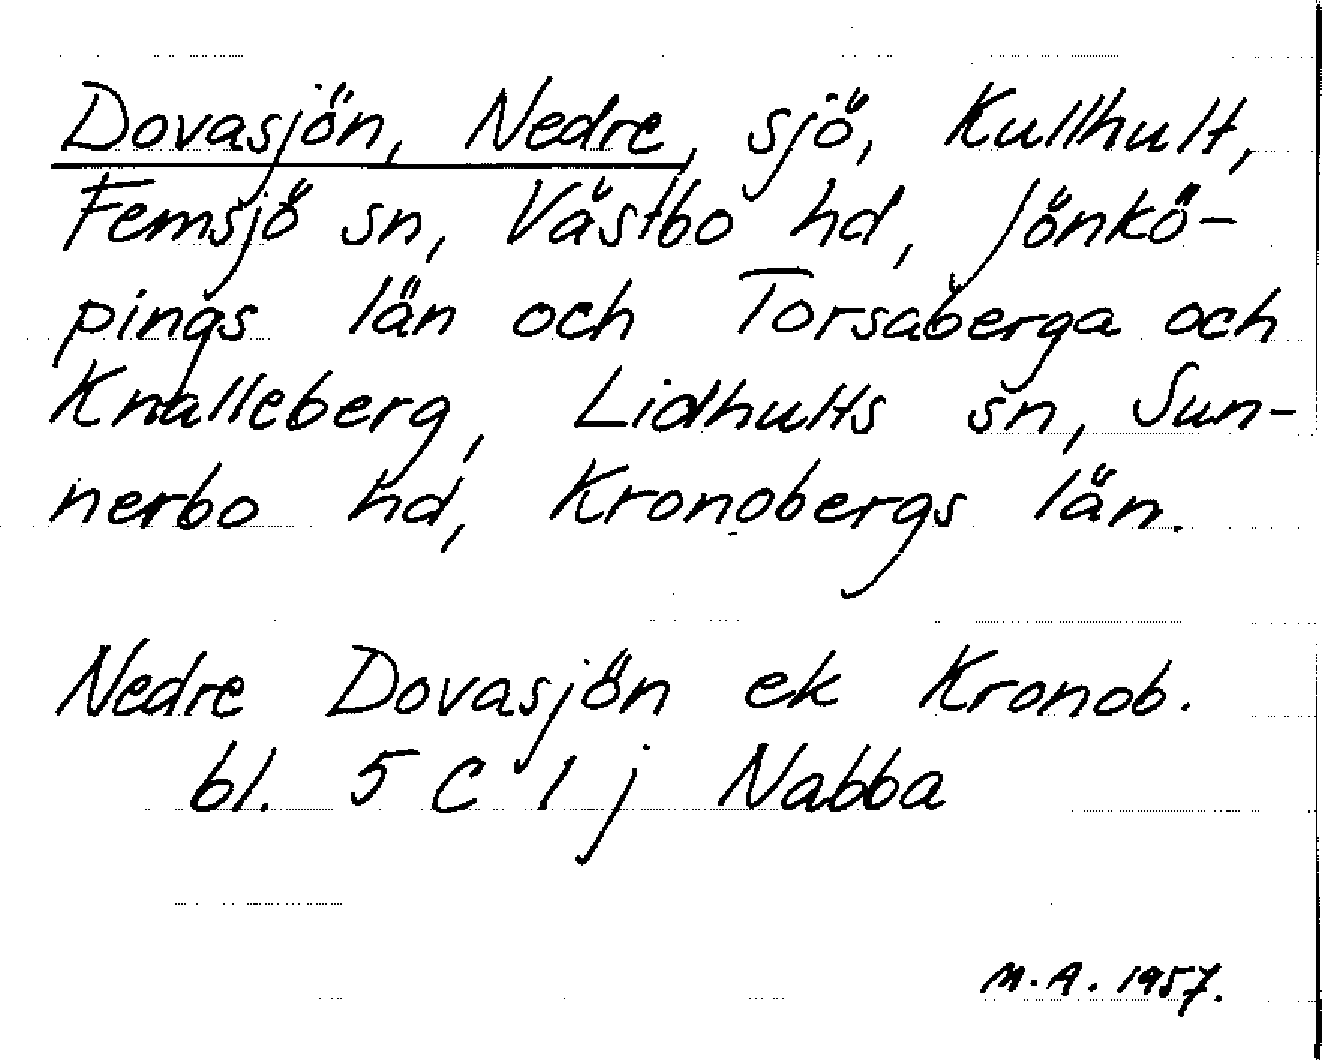 Dovasjön, Nedre, sjö, Kullhult,
Femsjö sn, Västbo hd, Jönkö-
pings län och Torsaberga och
Knalleberg, Lidhults sn, Sun-
nerbo hd, Kronobergs län.
Nedre Dovasjön ek Kronob.
bl. 5 C 1 j Nabba
M.A. 1957.